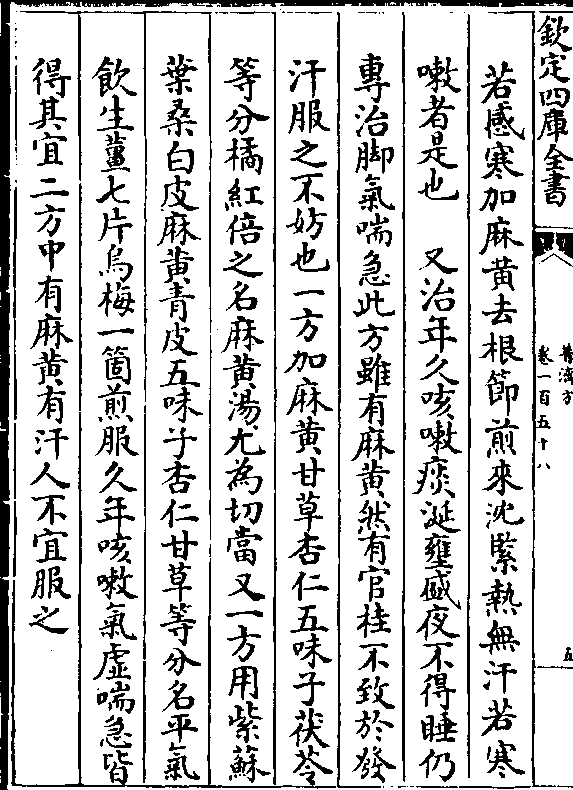 欽定四庫全書
普濟方
卷一百五十八
五
若感寒加麻黄去根節煎來沈緊熱無汗若寒
嗽者是也　又治年久咳嗽痰涎壅盛夜不得睡仍
專治脚氣喘急此方雖有麻黄然有官桂不致於發
汗服之不妨也一方加麻黄甘草杏仁五味子茯苓
等分橘紅倍之名麻黄湯尤為切當又一方用紫蘇
葉桑白皮麻黄青皮五味子杏仁甘草等分名平氣
飲生薑七片烏梅一箇煎服久年咳嗽氣虛喘急皆
得其宜二方中有麻黄有汗人不宜服之